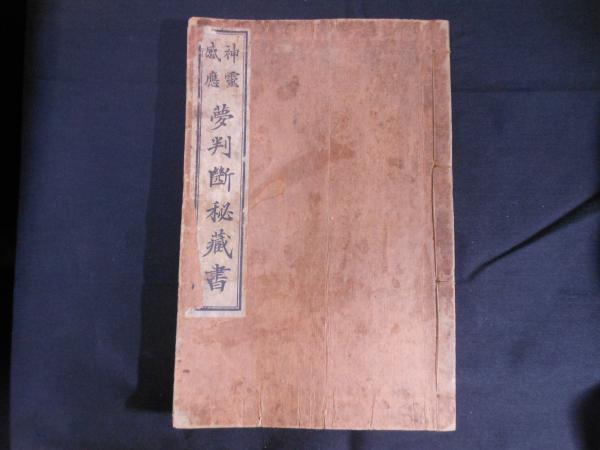 神靈
感應
夢判斷秘藏書